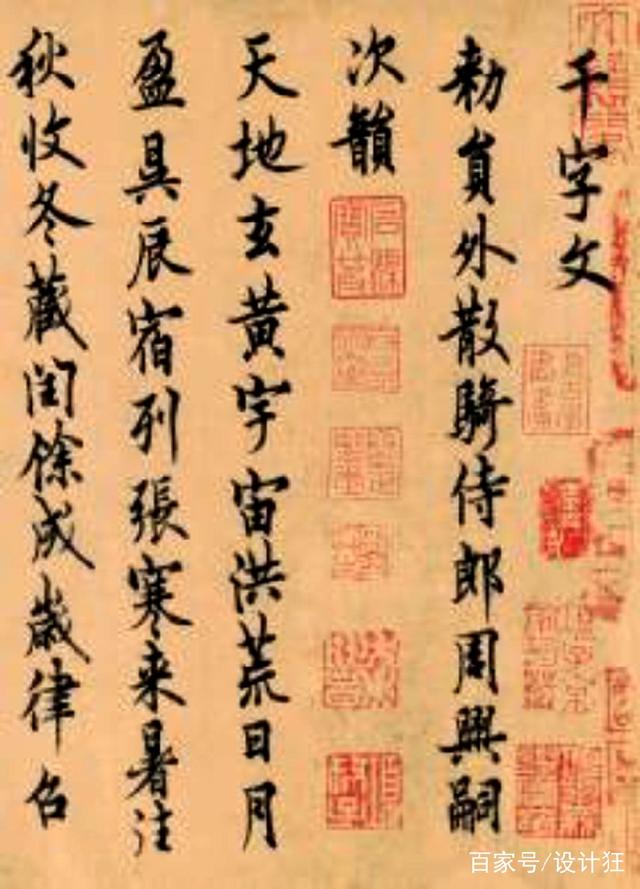 千字文
勑員外散騎侍郎周興嗣
次韻
天地玄黃宇宙洪荒日月
盈昃辰宿列張寒来暑往
秋收冬藏閏餘成歲律召
百家号/设计狂